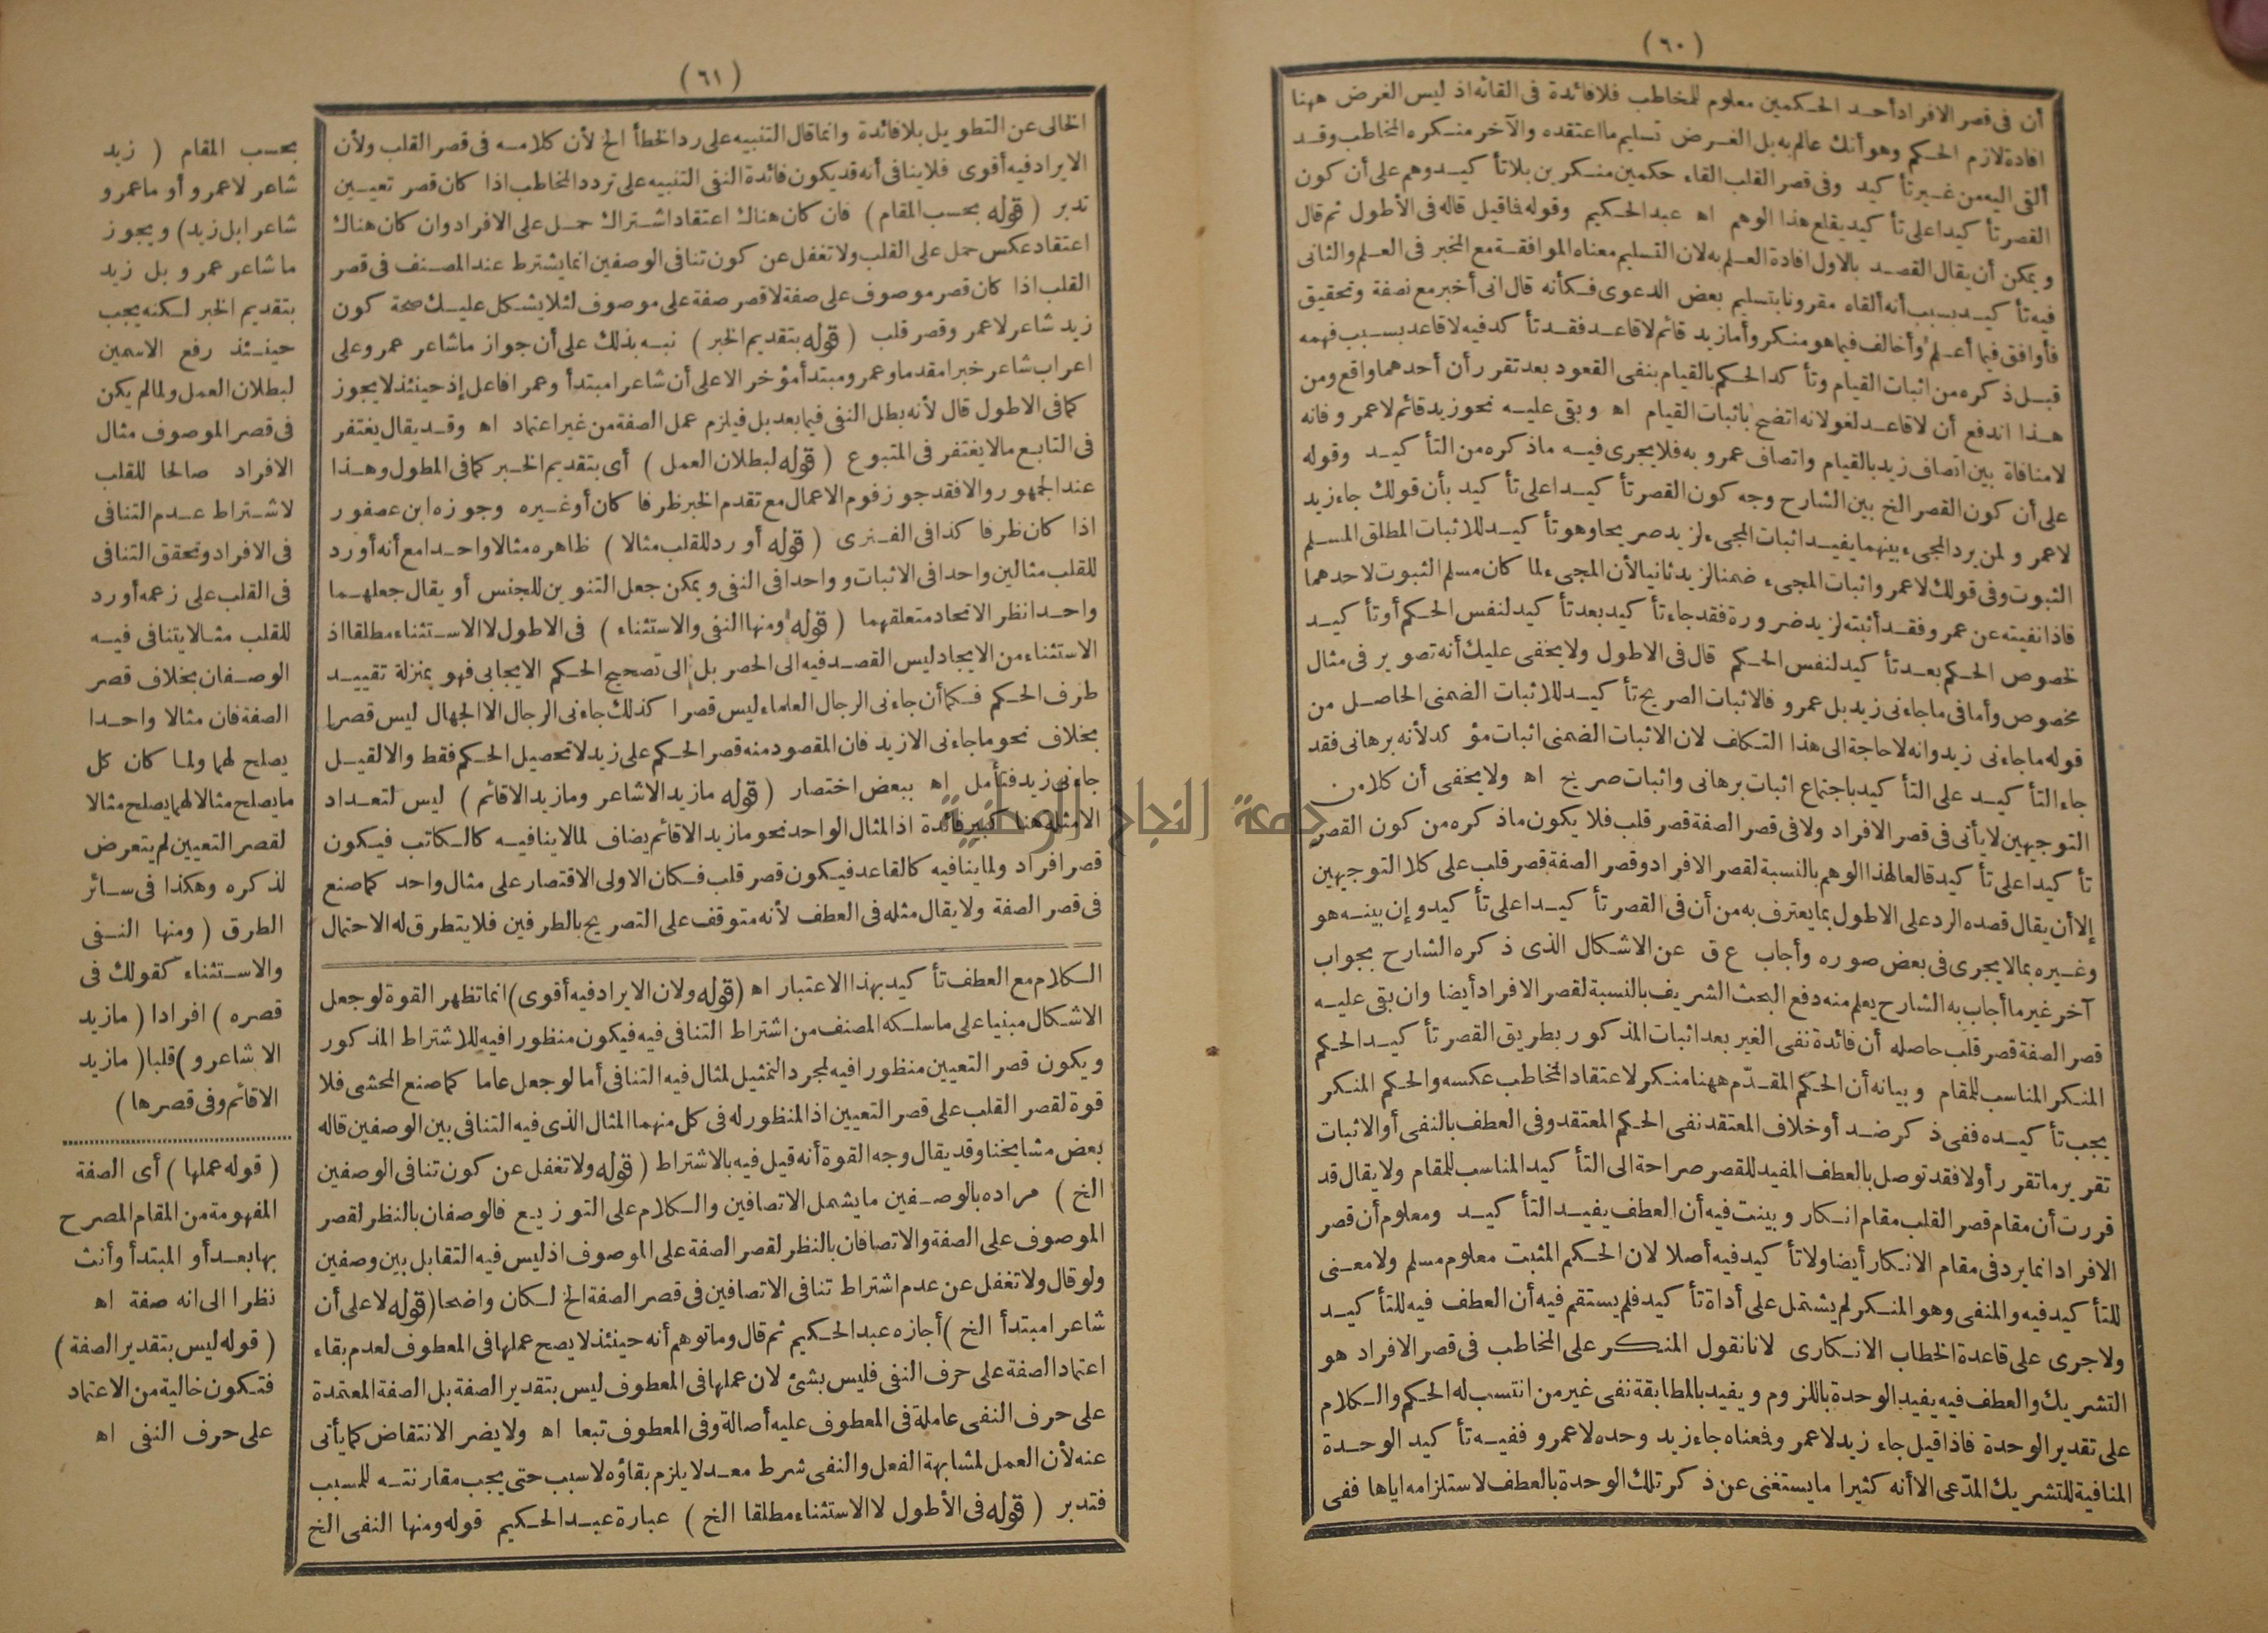 (٦٠)
أن فى قصر الافراد أحد الحكمين معلوم للمخاطب فلا فائدة فى القائه اذ ليس الغرض ههنا
افادة لازم الحكم وهو أنك عالم به بل الغرض تسليم ما اعتقده والآخر منكره المخاطب وقد
ألقى اليه من غير تأكيد وفى قصر القلب القاء حكمين منكرين بلا تأكيد وهم على أن كون
القصر تأكيدا على تأكيد يقلع هذا الوهم اه عبد الحكيم وقوله فاقيل قاله فى الأطول ثم قال
ويمكن أن يقال القصد بالاول افادة العلم به لان التسليم معناه الموافقة مع المخبر فى العلم والثانى
فيه تأكيد بسبب أنه ألقاه مقرونا بتسليم بعض الدعوى فكأنه قال انى أخبر مع نصفة وتحقيق
فأوافق فيما أعلم وأخالف فيما هو منكر وأما زيد قائم لا قاعد فقد تأكد فيه لا قاعد بسبب فهمه
قبل ذكره من اثبات القيام وتأكد الحكم بالقيام بنفى القعود بعد تقرر أن أحدهما واقع ومن
هذا اندفع أن لا قاعد لغو لانه اتضح باثبات القيام اه وبقى عليه نحو زيد قائم لا عمرو فانه
لا منافاة بين اتصاف زيد بالقيام واتصاف عمرو به فلا يجرى فيه ما ذكره من التأكيد وقوله
على أن كون القصر الخ بين الشارح وجه كون القصر تأكيدا على تأكيد بأن قولك جاء زيد
لا عمرو لمن يرد المجىء بينهما يفيد اثبات المجىء لزيد صريحا وهو تأكيد للاثبات المطلق المسلم
الثبوت وفى قولك لا عمرو اثبات المجىء ضمنا لزيد ثانيا لأن المجىء لما كان مسلم الثبوت لاحدهما
فاذا نفيته عن عمرو فقد أثبته لزيد ضرورة فقد جاء تأكيد بعد تأكيد لنفس الحكم أو تأكيد
لخصوص الحكم بعد تأكيد لنفس الحكم قال فى الاطول ولا يخفى عليك أنه تصوير فى مثال
مخصوص وأما فى ما جاءنى زيد بل عمرو فالاثبات الصريح تأكيد للاثبات الضمنى الحاصل من
قوله ما جاءنى زيد وانه لا حاجة الى هذا التكلف لان الاثبات الضمنى اثبات مؤكد لأنه برهانى فقد
جاء التأكيد على التأكيد باجتماع اثبات برهانى واثبات صريح اه ولا يخفى أن كلا من
التوجيهين لا يأتى فى قصر الافراد ولا فى قصر الصفة قصر قلب فلا يكون ما ذكره من كون القصر
تأكيدا على تأكيد قالعا لهذا الوهم بالنسبة لقصر الافراد وقصر الصفة قصر قلب على كلا التوجيهين
إلا أن يقال قصده الرد على الاطول بما يعترف به من أن فى القصر تأكيدا على تأكيد وإن بينه هو
وغيره بما لا يجرى فى بعض صوره وأجاب ع ق عن الاشكال الذى ذكره الشارح بجواب
آخر غير ما أجاب به الشارح يعلم منه دفع البحث الشريف بالنسبة لقصر الافراد أيضا وان بقى عليه
قصر الصفة قصر قلب حاصله أن فائدة نفى الغير بعد اثبات المذكور بطريق القصر تأكيد الحكم
المنكر المناسب للمقام وبيانه أن الحكم المقدّم ههنا منكر لاعتقاد المخاطب عكسه والحكم المنكر
يجب تأكيده ففى ذكر ضد أو خلاف المعتقد نفى الحكم المعتقد وفى العطف بالنفى أو الاثبات
تقرير ما تقرر أولا فقد توصل بالعطف المفيد للقصر صراحة الى التأكيد المناسب للمقام ولا يقال قد
قررت أن مقام قصر القلب مقام انكار وبينت فيه أن العطف يفيد التأكيد ومعلوم أن قصر
الافراد انما يرد فى مقام الانكار أيضا ولا تأكيد فيه أصلا لان الحكم المثبت معلوم مسلم ولا معنى
للتأكيد فيه والمنفى وهو المنكر لم يشتمل على أداة تأكيد فلم يستقم فيه أن العطف فيه للتأكيد
ولا جرى على قاعدة الخطاب الانكارى لانا نقول المنكر على المخاطب فى قصر الافراد هو
التشريك والعطف فيه يفيد الوحدة باللزوم ويفيد بالمطابقة نفى غير من انتسب له الحكم والكلام
على تقدير الوحدة فاذا قيل جاء زيد لا عمرو فمعناه جاء زيد وحده لا عمرو ففيه تأكيد الوحدة
المنافية للتشريك المدّعى الا أنه كثيرا ما يستغنى عن ذكر تلك الوحدة بالعطف لاستلزامه اياها ففى
(٦١)
الخالى عن التطويل بلا فائدة وانما قال التنبيه على رد الخطأ الخ لأن كلامه فى قصر القلب ولأن
الايراد فيه أقوى فلا ينافى أنه قد يكون فائدة النفى التنبيه على تردد المخاطب اذا كان قصر تعيين
تدبر (قوله بحسب المقام) فان كان هناك اعتقاد اشتراك حمل على الافراد وان كان هناك
اعتقاد عكس حمل على القلب ولا تغفل عن كون تنافى الوصفين انما يشترط عند المصنف فى قصر
القلب اذا كان قصر موصوف على صفة لا قصر صفة على موصوف لئلا يشكل عليك صحة كون
زيد شاعر لا عمرو قصر قلب (قوله بتقديم الخبر) نبه بذلك على أن جواز ما شاعر عمرو على
اعراب شاعر خبرا مقدما وعمرو مبتدأ مؤخر الا على أن شاعرا مبتدأ وعمرا فاعل إذ حينئذ لا يجوز
كما فى الاطول قال لأنه بطل النفى فيما بعد بل فيلزم عمل الصفة من غير اعتماد اه وقد يقال يغتفر
فى التابع ما لا يغتفر فى المتبوع (قوله لبطلان العمل) أى بتقديم الخبر كما فى المطول وهذا
عند الجمهور والا فقد جوز قوم الاعمال مع تقدم الخبر ظرفا كان أو غيره وجوزه ابن عصفور
اذا كان ظرفا كذا فى الفنرى (قوله أورد للقلب مثالا) ظاهره مثالا واحدا مع أنه أورد
للقلب مثالين واحدا فى الاثبات وواحدا فى النفى ويمكن جعل التنوين للجنس أو يقال جعلهما
واحدا نظر الاتحاد متعلقهما (قوله ومنها النفى والاستثناء) فى الاطول لا الاستثناء مطلقا اذ
الاستثناء من الايجاد ليس القصد فيه الى الحصر بل الى تصحيح الحكم الايجابى فهو بمنزلة تقييد
طرف الحكم فكما أن جاءنى الرجال العلماء ليس قصرا كذلك جاءنى الرجال الا الجهال ليس قصرا
بخلاف نحو ما جاءنى الا زيد فان المقصود منه قصر الحكم على زيد لا تحصيل الحكم فقط والا لقيل
جاءنى زيد فتأمل اه ببعض اختصار (قوله ما زيد الا شاعر وما زيد الا قائم) ليس لتعداد
الامثلة هنا كبير فائدة اذ المثال الواحد نحو ما زيد الا قائم يضاف لما لا ينافيه كالكاتب فيكون
قصر افراد ولما ينافيه كالقاعد فيكون قصر قلب فكان الاولى الاقتصار على مثال واحد كما صنع
فى قصر الصفة ولا يقال مثله فى العطف لأنه متوقف على التصريح بالطرفين فلا يتطرق له الاحتمال
الكلام مع العطف تأكيد بهذا الاعتبار اه (قوله ولان الايراد فيه أقوى) انما تظهر القوة لو جعل
الاشكال مبنيا على ما سلكه المصنف من اشتراط التنافى فيه فيكون منظورا فيه للاشتراط المذكور
ويكون قصر التعيين منظورا فيه لمجرد التمثيل لمثال فيه التنافى أما لو جعل عاما كما صنع المحشى فلا
قوة لقصر القلب على قصر التعيين اذ المنظور له فى كل منهما المثال الذى فيه التنافى بين الوصفين قاله
بعض مشايخنا وقد يقال وجه القوة أنه قيل فيه بالاشتراط (قوله ولا تغفل عن كون تنافى الوصفين
الخ) مراده بالوصفين ما يشمل الاتصافين والكلام على التوزيع فالوصفان بالنظر لقصر
الموصوف على الصفة والاتصافان بالنظر لقصر الصفة على الموصوف اذ ليس فيه التقابل بين وصفين
ولو قال ولا تغفل عن عدم اشتراط تنافى الاتصافين فى قصر الصفة الخ لكان واضحا (قوله لا على أن
شاعرا مبتدأ الخ) أجازه عبد الحكيم ثم قال وما توهم أنه حينئذ لا يصح عملها فى المعطوف لعدم بقاء
اعتماد الصفة على حرف النفى فليس بشئ لان عملها فى المعطوف ليس بتقدير الصفة بل الصفة المعتمدة
على حرف النفى عاملة فى المعطوف عليه أصالة وفى المعطوف تبعا اه ولا يضر الانتقاض كما يأتى
عنه لأن العمل لمشابهة الفعل والنفى شرط معد لا يلزم بقاؤه لا سبب حتى يجب مقارنته للمسبب
فتدبر (قوله فى الأطول لا الاستثناء مطلقا الخ) عبارة عبد الحكيم قوله ومنها النفى الخ
بحسب المقام (زيد
شاعر لا عمرو أو ما عمرو
شاعرا بل زيد) ويجوز
ما شاعر عمرو بل زيد
بتقديم الخبر لكنه يجب
حينئذ رفع الاسمين
لبطلان العمل ولما لم يكن
فى قصر الموصوف مثال
الافراد صالحا للقلب
لاشتراط عدم التنافى
فى الافراد وتحقق التنافى
فى القلب على زعمه أورد
للقلب مثالا يتنافى فيه
الوصفان بخلاف قصر
الصفة فان مثالا واحدا
يصلح لهما ولما كان كل
ما يصلح مثالا لهما يصلح مثالا
لقصر التعيين لم يتعرض
لذكره وهكذا فى سائر
الطرق (ومنها النفى
والاستثناء كقولك فى
قصره) افرادا (ما زيد
الا شاعرو) قلبا (ما زيد
الا قائم وفى قصرها)
(قوله عملها) أى الصفة
المفهومة من المقام المصرح
بها بعد أو المبتدأ وأنث
نظرا الى انه صفة اه
(قوله ليس بتقدير الصفة)
فتكون خالية من الاعتماد
على حرف النفى اه
جامعة النجاح الوطنية